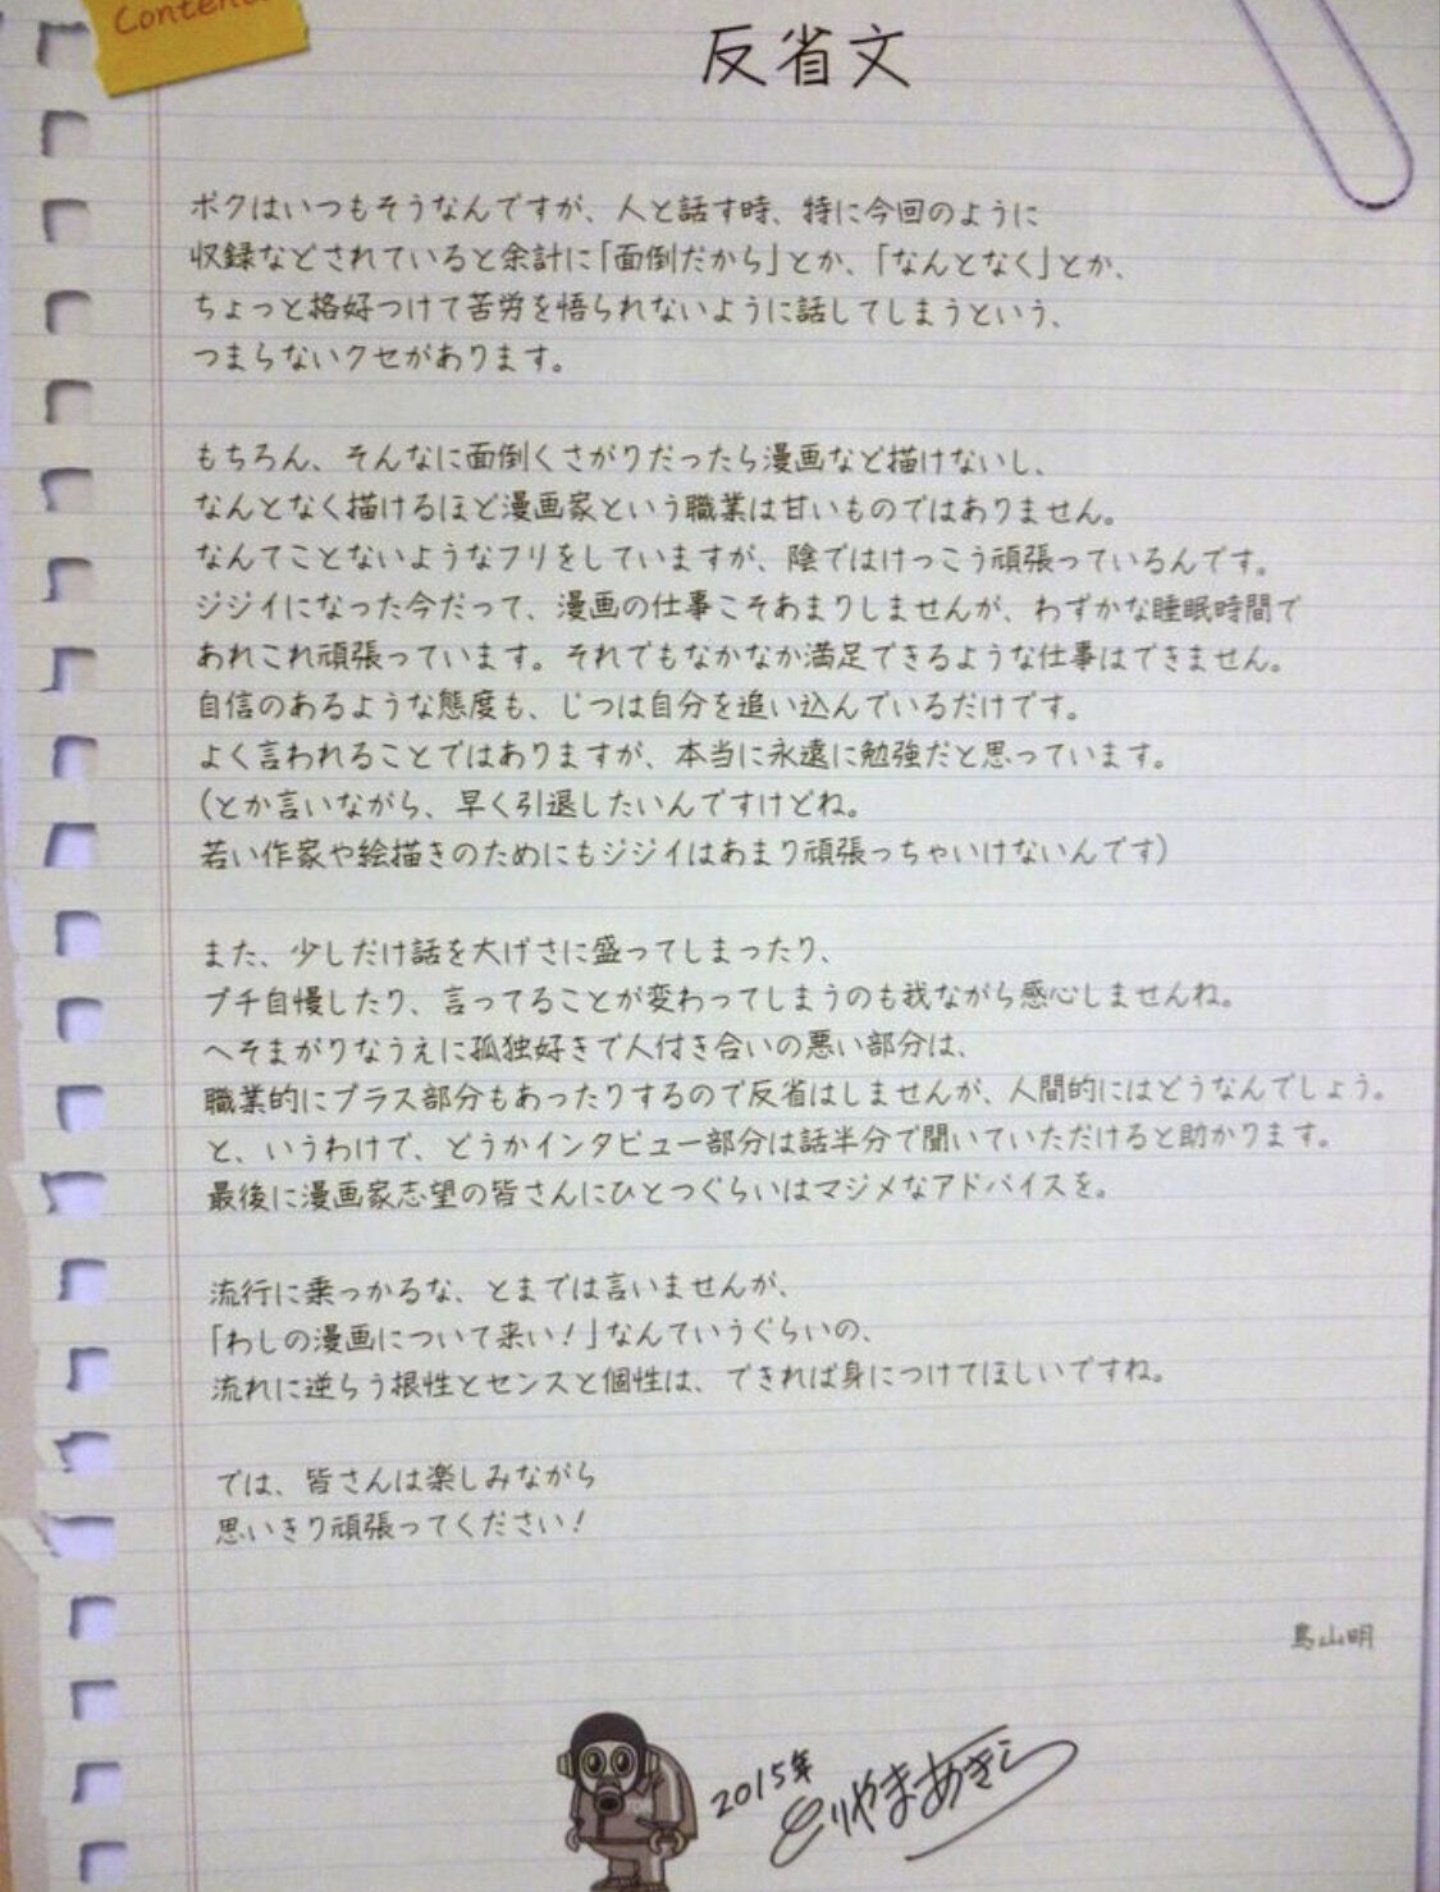 Conten
反省文
ボクはいつもそうなんですが、人と話す時、特に今回のように
収録などされていると余計に「面倒だから」とか、「なんとなく」とか、
ちょっと格好つけて苦労を悟られないように話してしまうという、
つまらないクセがあります。
もちろん、そんなに面倒くさがりだったら漫画など描けないし、
なんとなく描けるほど漫画家という職業は甘いものではありません。
なんてことないようなフリをしていますが、陰ではけっこう頑張っているんです。
ジジイになった今だって、漫画の仕事こそあまりしませんが、わずかな睡眠時間で
あれこれ頑張っています。それでもなかなか満足できるような仕事はできません。
自信のあるような態度も、じつは自分を追い込んでいるだけです。
よく言われることではありますが、本当に永遠に勉強だと思っています。
（とか言いながら、早く引退したいんですけどね。
若い作家や絵描きのためにもジジイはあまり頑張っちゃいけないんです）
また、少しだけ話を大げさに盛ってしまったり、
プチ自慢したり、言ってることが変わってしまうのも我ながら感心しませんね。
へそまがりなうえに孤独好きで人付き合いの悪い部分は、
職業的にプラス部分もあったりするので反省はしませんが、人間的にはどうなんでしょう。
と、いうわけで、どうかインタビュー部分は話半分で聞いていただけると助かります。
最後に漫画家志望の皆さんにひとつぐらいはマジメなアドバイスを。
流行に乗っかるな、とまでは言いませんが、
「わしの漫画について来い！」なんていうぐらいの、
流れに逆らう根性とセンスと個性は、できれば身につけてほしいですね。
では、皆さんは楽しみながら
思いきり頑張ってください！
鳥山明
2015年 とりやまあきら